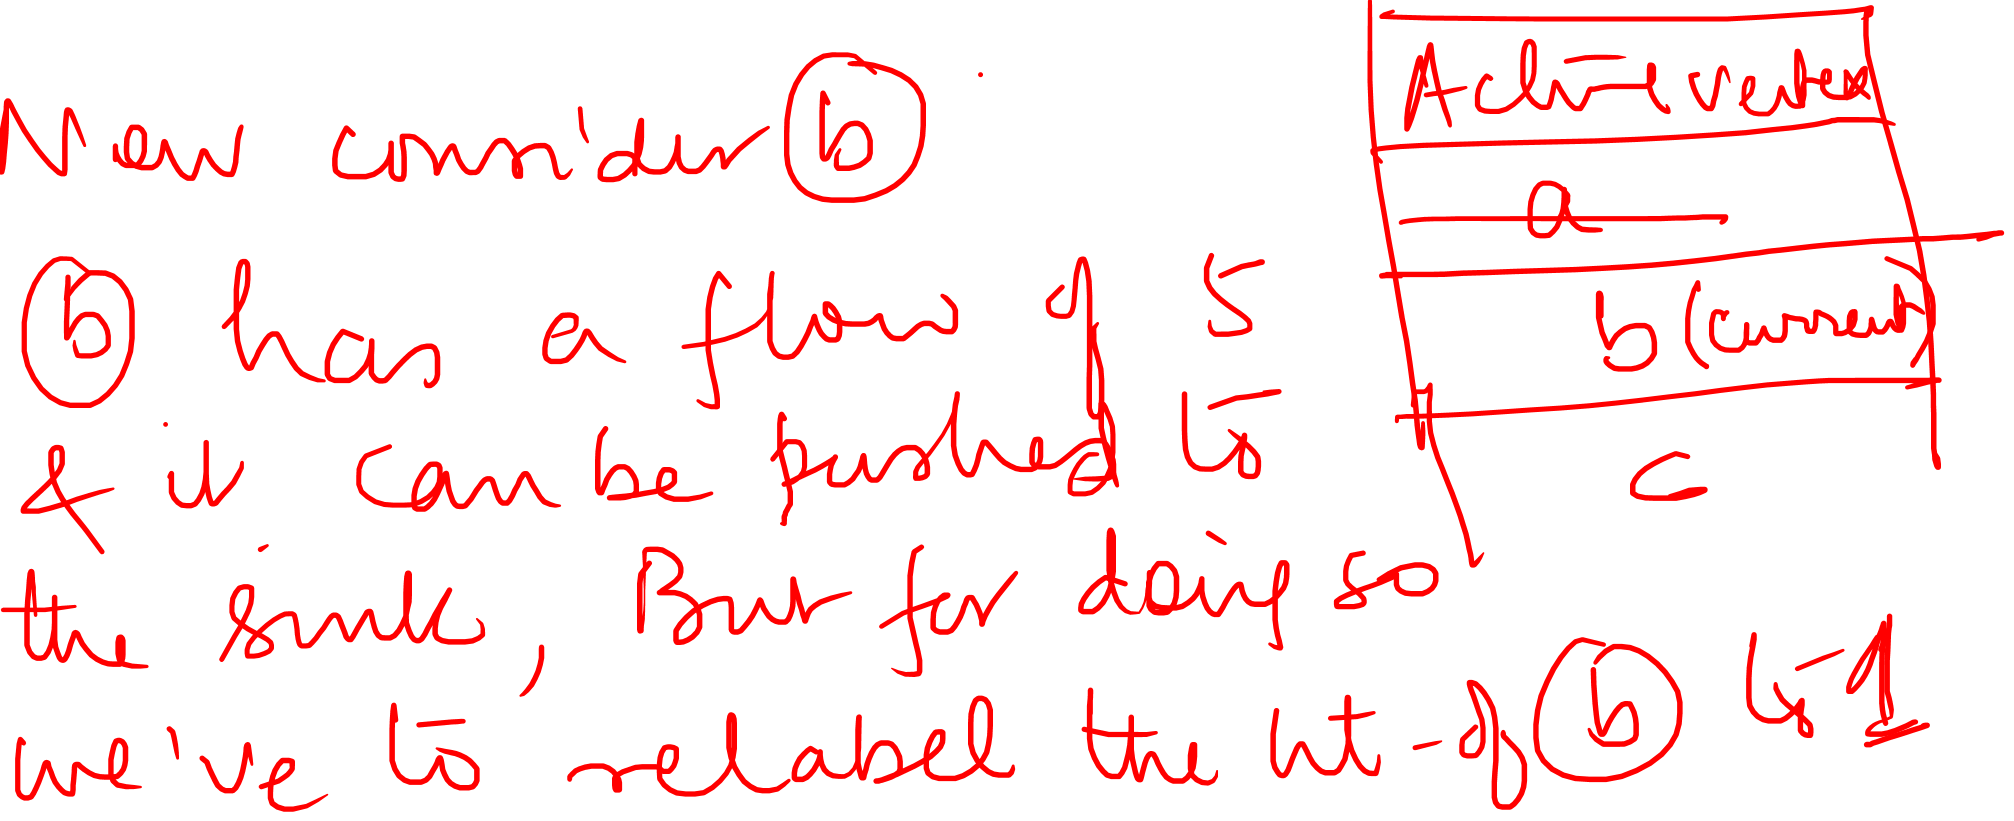 Now consider b
b has a flow of 5
& it can be pushed to
the sink, But for doing so
we've to relabel the ht. of b to 1
Active vertex
a
b (current)
c